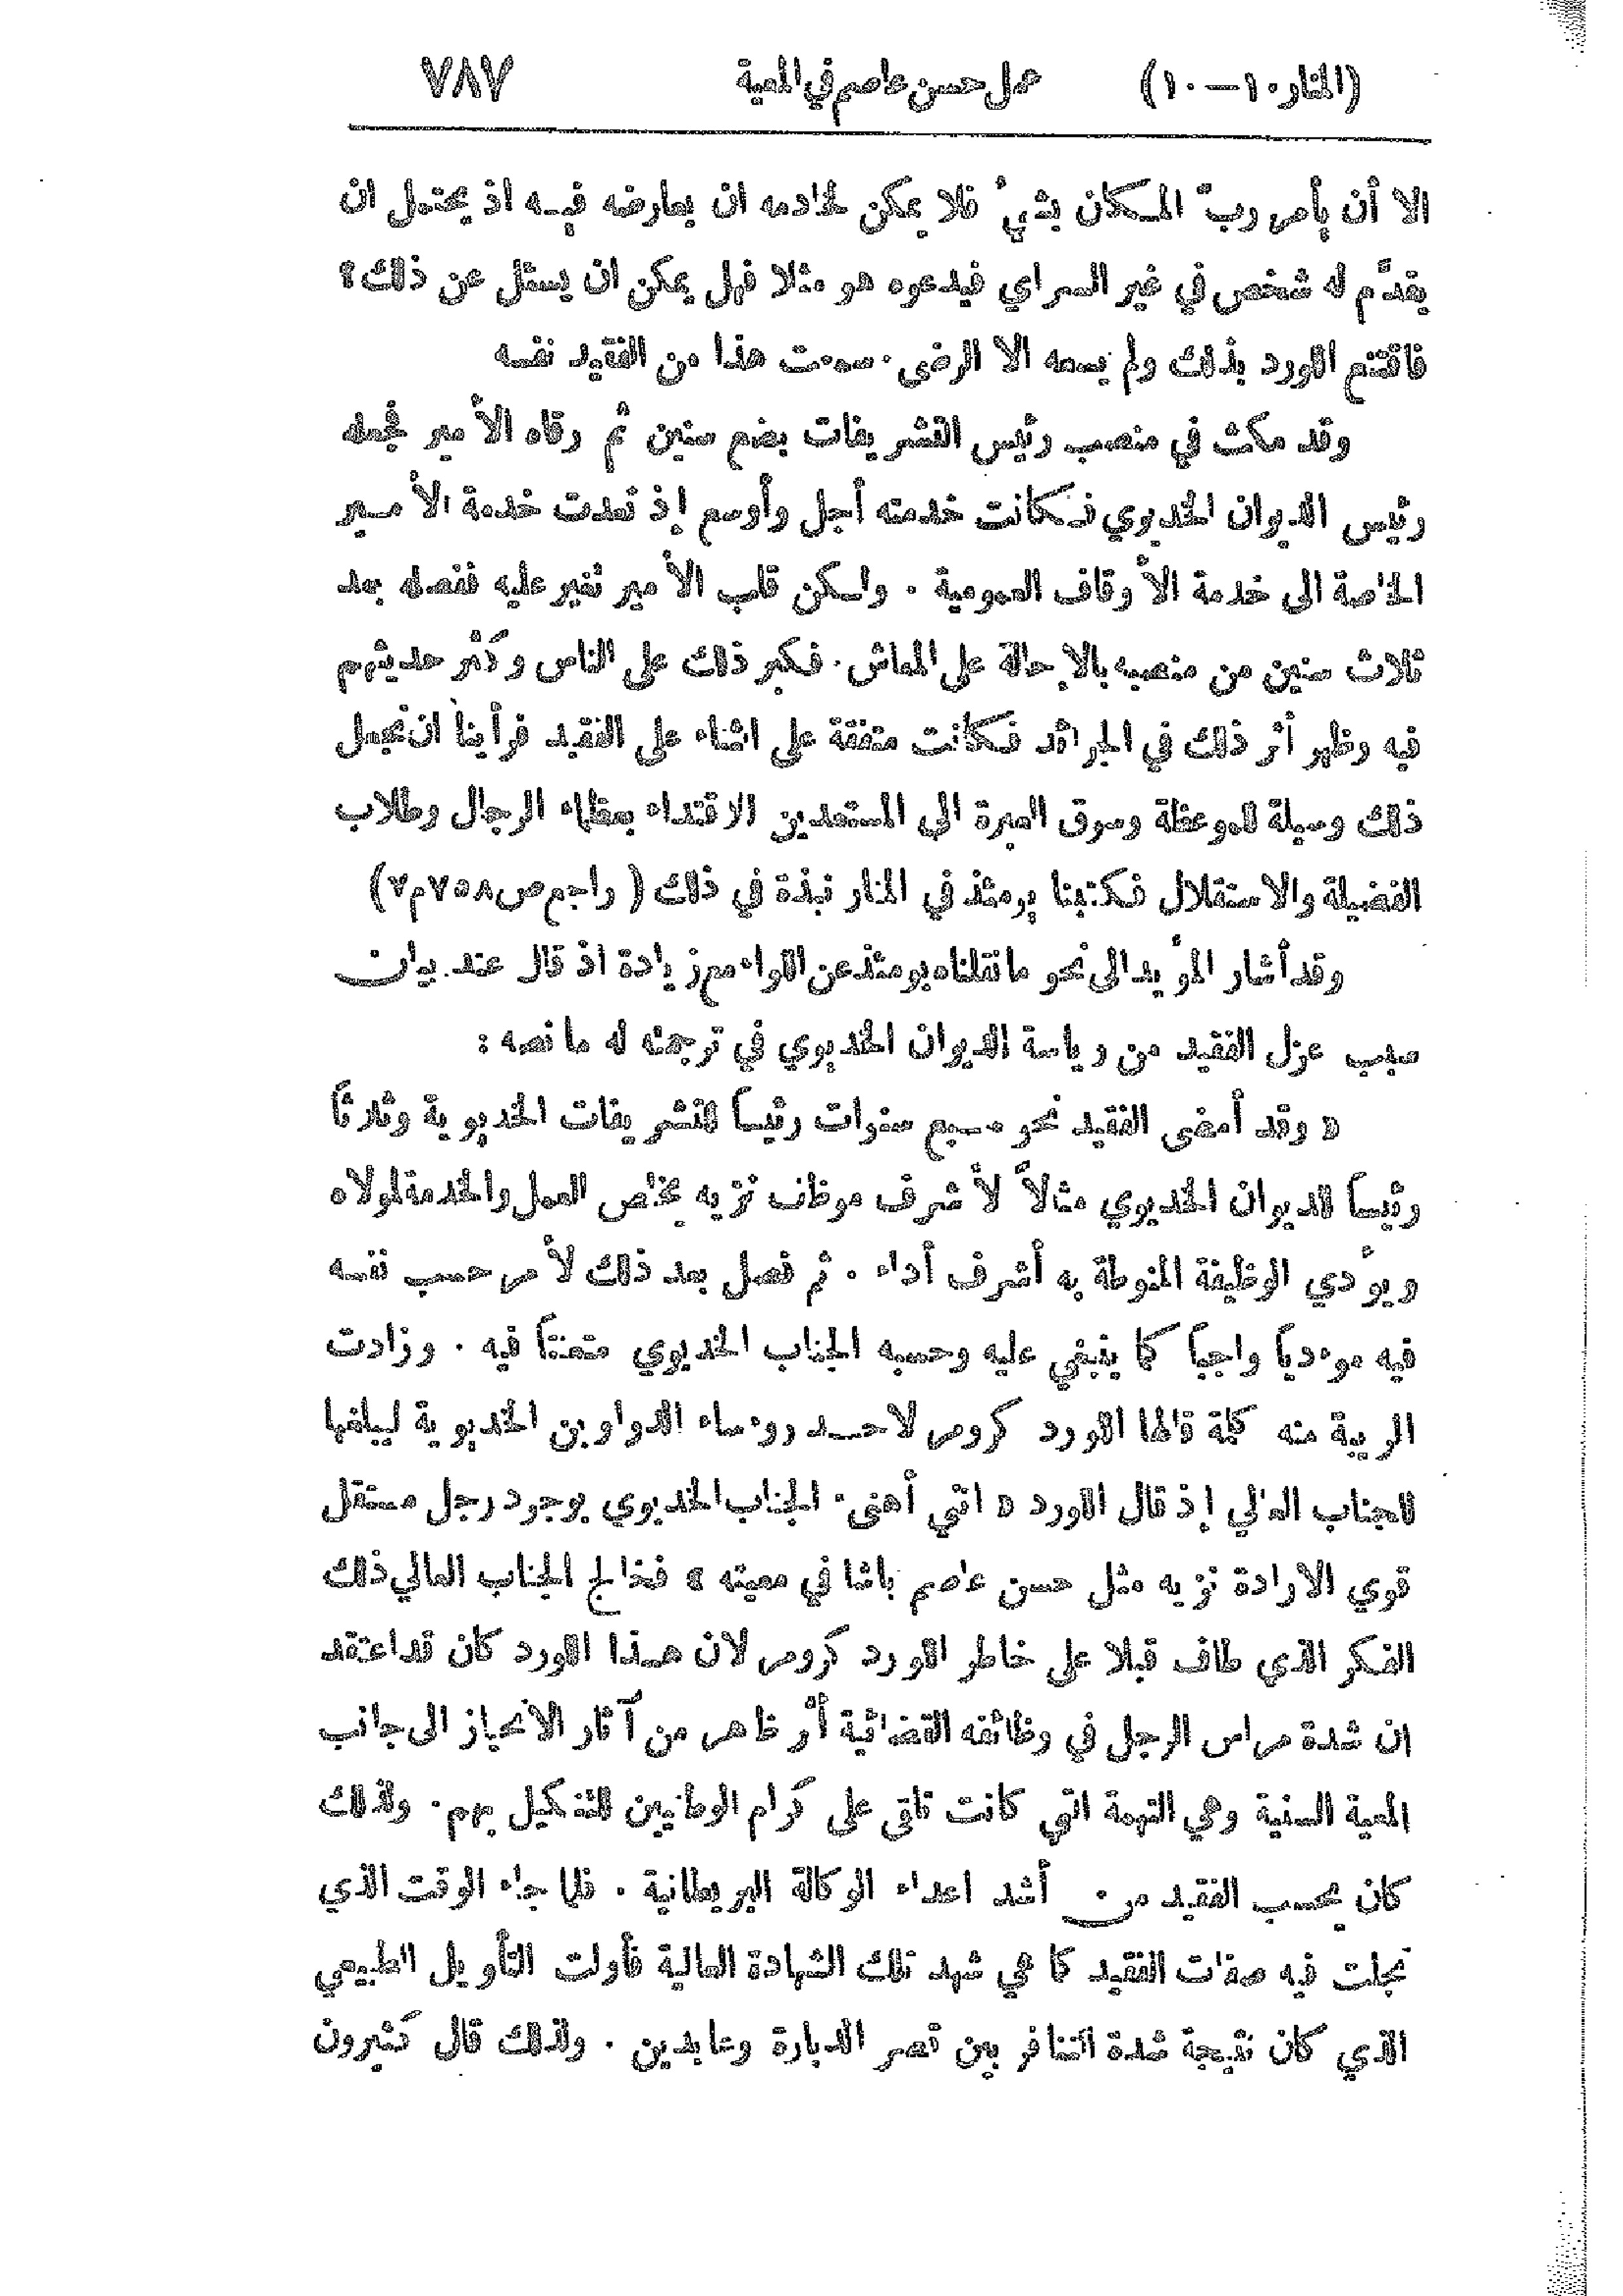 (المنار ١٠ — ١٠) عمل حسن عاصم في المعية ٧٨٧
الا أن يأمر ربّ المكان بشيء فلا يمكن لخادمه ان يعارضه فيه اذ يحتمل ان
يقدَّم له شخص في غير السراي فيدعوه هو مثلا فهل يمكن ان يسئل عن ذلك؟
فاقتنع اللورد بذلك ولم يسعه الا الرضى . سمعت هذا من الفقيد نفسه
وقد مكث في منصب رئيس التشريفات بضع سنين ثم رقاه الأمير فجعله
رئيس الديوان الخديوي فكانت خدمته أجل وأوسع إذ تعدت خدمة الأمير
الخاصة الى خدمة الأوقاف العمومية . ولكن قلب الأمير تغير عليه ففصله بعد
ثلاث سنين من منصبه بالإحالة على المعاش . فكبر ذلك على الناس وكثر حديثهم
فيه وظهر أثر ذلك في الجرائد فكانت متفقة على الثناء على الفقيد فرأينا ان نجعل
ذلك وسيلة للموعظة وسوق العبرة الى المستعدين للاقتداء بعظماء الرجال وطلاب
الفضيلة والاستقلال فكتبنا يومئذ في المنار نبذة في ذلك ( راجع ص ٧٥٨ م ٧)
وقد أشار المؤيد الى نحو ما نقلناه يومئذ عن اللواء مع زيادة اذ قال عند بيان
سبب عزل الفقيد من رياسة الديوان الخديوي في ترجمته له ما نصه :
« وقد أمضى الفقيد نحو سبع سنوات رئيساً للتشريفات الخديوية وثلاثاً
رئيساً للديوان الخديوي مثالاً لأشرف موظف نزيه يخلص العمل والخدمة لمولاه
ويؤدي الوظيفة المنوطة به أشرف أداء . ثم فصل بعد ذلك لأمر حسب نفسه
فيه مؤدياً واجباً كما ينبغي عليه وحسبه الجناب الخديوي متعنتاً فيه . وزادت
الريبة منه كلمة قالها اللورد كرومر لاحد رؤساء الدواوين الخديوية ليبلغها
للجناب العالي إذ قال اللورد « انني أهنئ الجناب الخديوي بوجود رجل مستقل
قوي الارادة نزيه مثل حسن عاصم باشا في معيته » فخالج الجناب العالي ذلك
الفكر الذي طاف قبلا على خاطر اللورد كرومر لان هذا اللورد كان قد اعتقد
ان شدة مراس الرجل في وظائفه القضائية أثر ظاهر من آثار الانحياز الى جانب
المعية السنية وهي التهمة التي كانت تلقى على كرام الوطنيين للتنكيل بهم . ولذلك
كان يحسب الفقيد من أشد اعداء الوكالة البريطانية . فلما جاء الوقت الذي
تجلت فيه صفات الفقيد كما هي شهد تلك الشهادة العالية فأولت التأويل الطبيعي
الذي كان نتيجة شدة التنافر بين قصر الدبارة وعابدين . ولذلك قال كثيرون